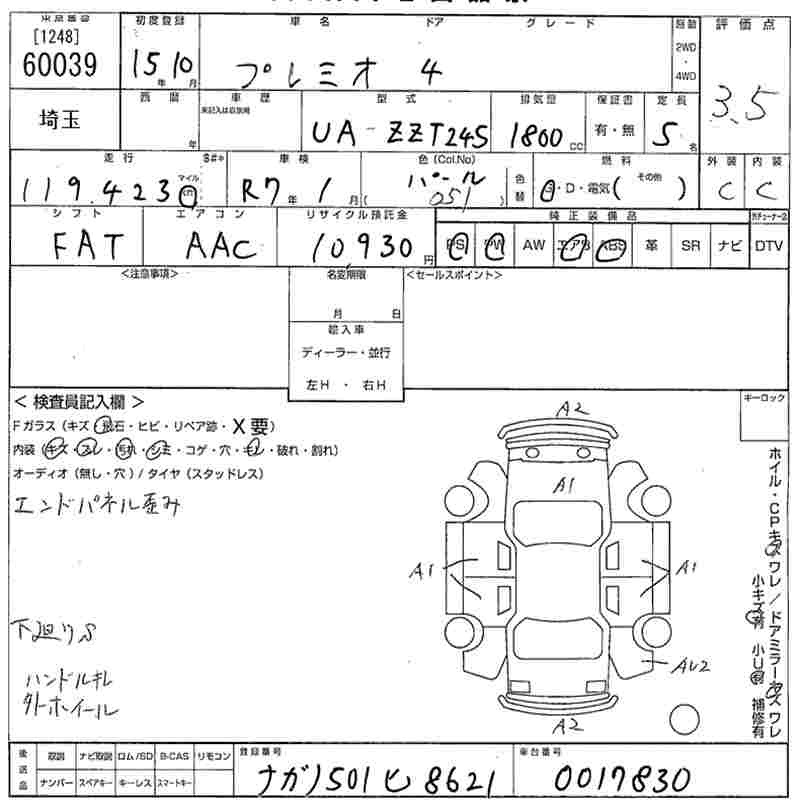 出品番号 初度登録 車名 ドア グレード 駆動 評価点
[1248]
60039 15年 10月 プレミオ 4 2WD・4WD 3.5
埼玉 西暦 年 車歴 未記入は自家用 型式 排気量 保証書 定員
UA-ZZT245 1800 CC 有・無 5名
走行 S#* 車検 色 (Col.No) 色替 燃料 外装 内装
119,423 マイル km R7年 1月 パール ( 051 ) G・D・電気( その他 ) C C
シフト エアコン リサイクル預託金 純正装備品
FAT AAC 10,930円 PS PW AW エアB ABS 革 SR ナビ DTV
<注意事項> 名変期限 <セールスポイント>
月 日
輸入車
ディーラー・並行
左H ・ 右H
< 検査員記入欄 > キーロック
Fガラス (キズ・飛石・ヒビ・リペア跡・X要)
内装 (キズ・スレ・汚れ・シミ・コゲ・穴・キレ・破れ・割れ)
オーディオ (無し・穴) / タイヤ (スタッドレス)
エンドパネル歪み
下廻りS
ハンドルキレ
外トホイール
A2
A1
A1
A1
AU2
A2
ホイル・CPキズワレ/ドアミラーキズワレ
小キズ有 小U有 補修有
後送品 取説 ナビ取説 ロム/SD B-CAS リモコン 登録番号 車台番号
ナンバー スペアキー キーレス スマートキー ナガノ501ヒ8621 0017830